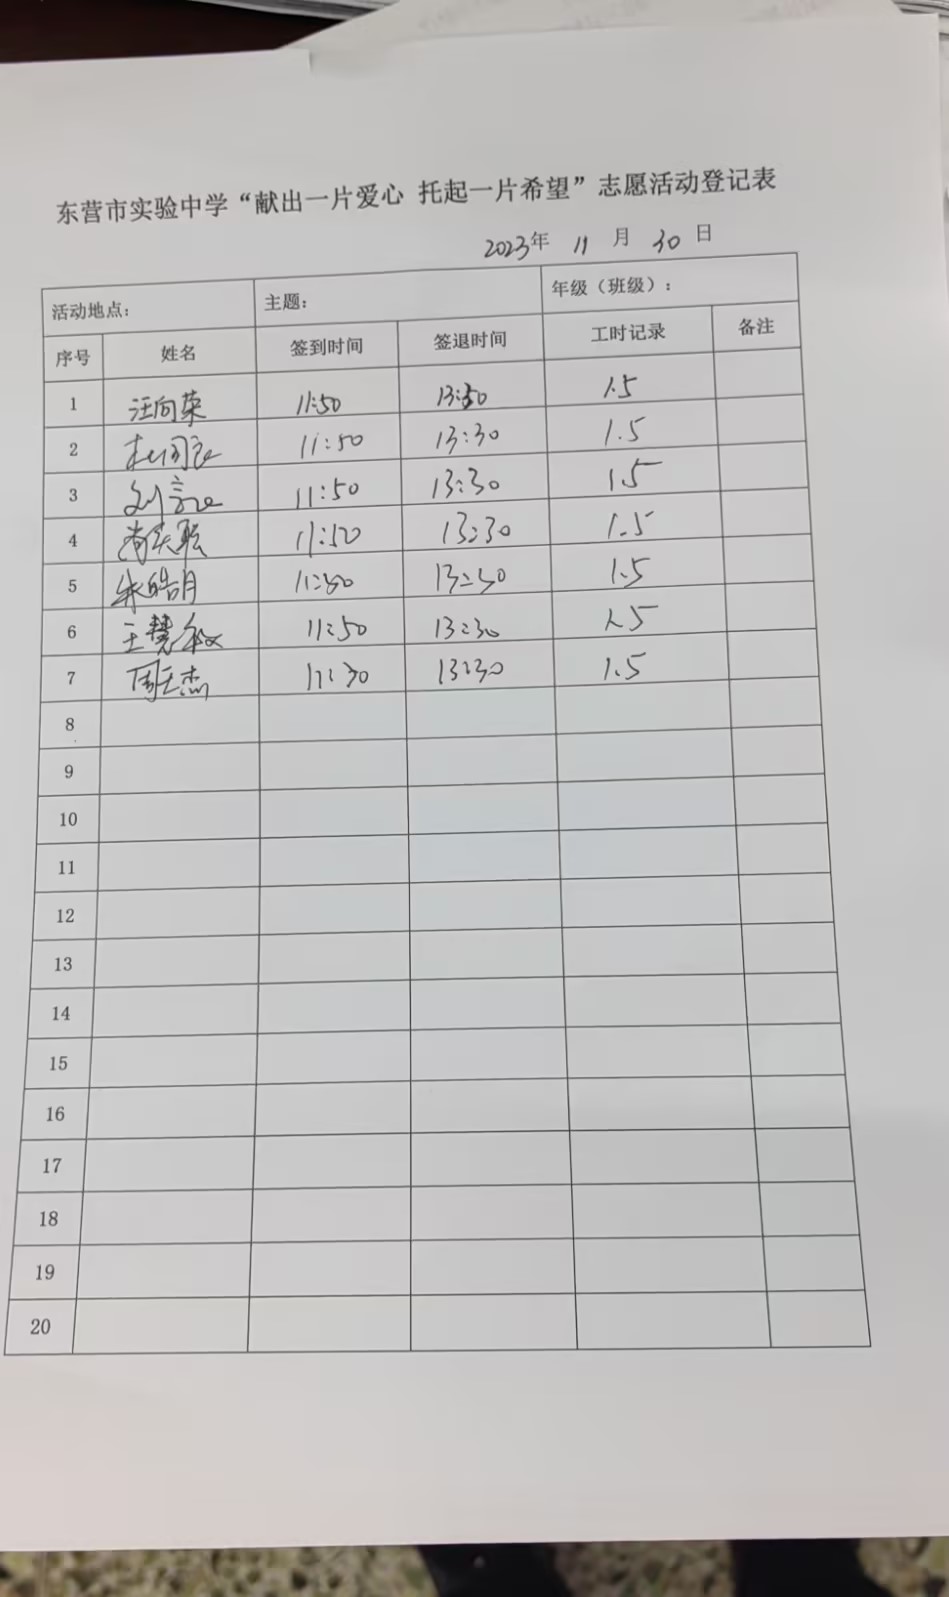 东营市实验中学“献出一片爱心 托起一片希望”志愿活动登记表
2023年 11 月 30 日
活动地点: 主题: 年级（班级）:
序号 姓名 签到时间 签退时间 工时记录 备注
1 汪向荣 11:50 13:30 1.5
2 11:50 13:30 1.5
3 刘 11:50 13:30 1.5
4 11:50 13:30 1.5
5 朱皓月 11:50 13:30 1.5
6 王慧敏 11:50 13:30 1.5
7 周玉杰 11:30 13:30 1.5
8
9
10
11
12
13
14
15
16
17
18
19
20